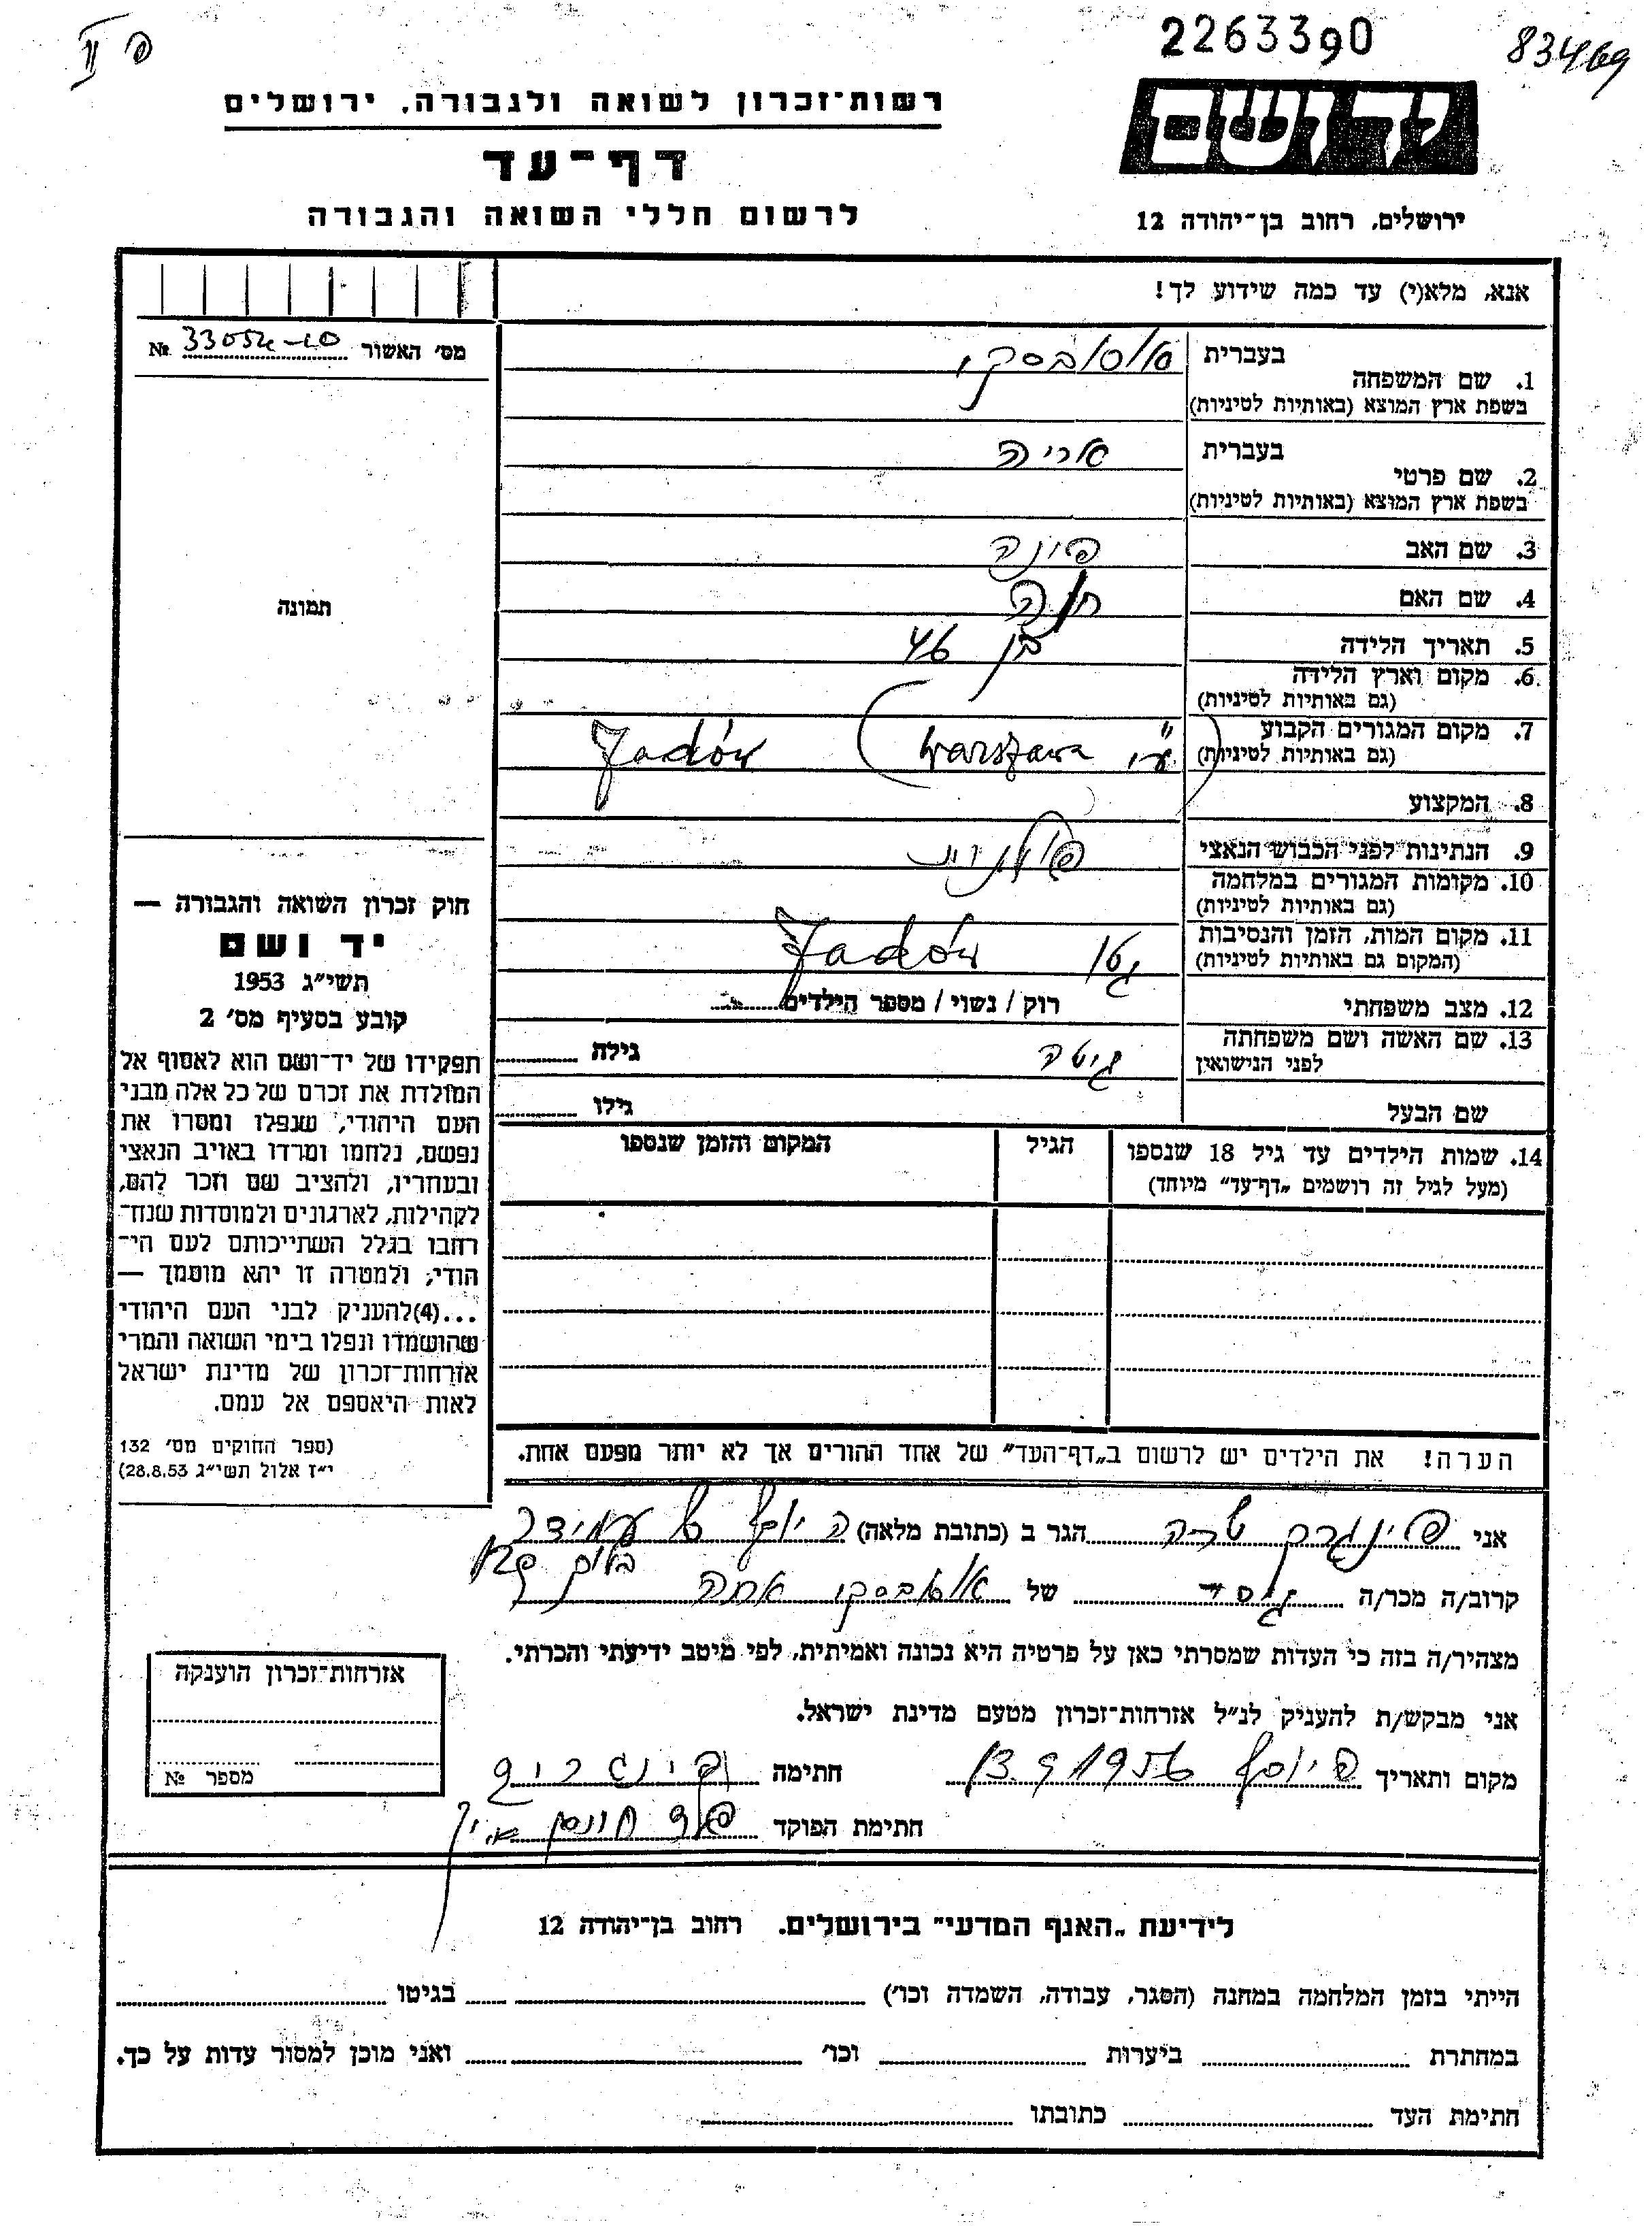 פ II
2263390
83469
רשות־זכרון לשואה ולגבורה, ירושלים
יד ושם
דף־עד
לרשום חללי השואה והגבורה
ירושלים, רחוב בן־יהודה 12
אנא, מלא(י) עד כמה שידוע לך!
מס׳ האשור №
1. שם המשפחה
בעברית
בשפת ארץ המוצא (באותיות לטיניות)
2. שם פרטי
בעברית אריה
בשפת ארץ המוצא (באותיות לטיניות)
3. שם האב
4. שם האם חנה
5. תאריך הלידה בן 46
6. מקום וארץ הלידה
(גם באותיות לטיניות)
7. מקום המגורים הקבוע (ע״י Warszawa) Jadów
(גם באותיות לטיניות)
8. המקצוע
9. הנתינות לפני הכבוש הנאצי פולנית
10. מקומות המגורים במלחמה
(גם באותיות לטיניות)
11. מקום המות, הזמן והנסיבות גטו Jadów
(המקום גם באותיות לטיניות)
12. מצב משפחתי רוק / נשוי / מספר הילדים
13. שם האשה ושם משפחתה גיטה גילה
לפני הנישואין
שם הבעל גילו
14. שמות הילדים עד גיל 18 שנספו הגיל המקום והזמן שנספו
(מעל לגיל זה רושמים „דף־עד״ מיוחד)
הערה! את הילדים יש לרשום ב„דף־העד״ של אחד ההורים אך לא יותר מפעם אחת.
תמונה
חוק זכרון השואה והגבורה —
יד ושם
תשי״ג 1953
קובע בסעיף מס׳ 2
תפקידו של יד־ושם הוא לאסוף אל
המולדת את זכרם של כל אלה מבני
העם היהודי, שנפלו ומסרו את
נפשם, נלחמו ומרדו באויב הנאצי
ובעוזריו, ולהציב שם וזכר להם,
לקהילות, לארגונים ולמוסדות שנח־
רבו בגלל השתייכותם לעם הי־
הודי; ולמטרה זו יהא מוסמך —
...(4)להעניק לבני העם היהודי
שהושמדו ונפלו בימי השואה והמרי
אזרחות־זכרון של מדינת ישראל
לאות היאספם אל עמם.
(ספר החוקים מס׳ 132
י״ז אלול תשי״ג 28.8.53)
אני הגר ב (כתובת מלאה)
קרוב/ה מכר/ה גיסו של
מצהיר/ה בזה כי העדות שמסרתי כאן על פרטיה היא נכונה ואמיתית, לפי מיטב ידיעתי והכרתי.
אני מבקש/ת להעניק לנ״ל אזרחות־זכרון מטעם מדינת ישראל.
מקום ותאריך 13.9.1956 חתימה
חתימת הפוקד
אזרחות־זכרון הוענקה
מספר №
לידיעת „האגף המדעי״ בירושלים. רחוב בן־יהודה 12
הייתי בזמן המלחמה במחנה (הסגר, עבודה, השמדה וכו׳) בגיטו
במחתרת ביערות וכו׳ ואני מוכן למסור עדות על כך.
חתימת העד כתובתו